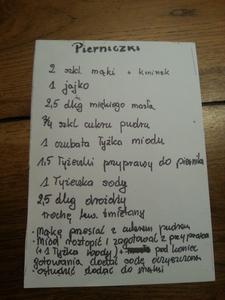 Pierniczki
2 szkl mąki + kminek
1 jajko
2,5 dkg miękiego masła
3/4 szkl cukru pudru
1 czubata łyżka miodu
1,5 łyżeczki przyprawy do piernika
1 łyżeczka sody
2,5 dkg drożdży
trochę kw. śmietany
• Mąkę przesiać z cukrem pudrem
• Miód roztopić i zagotować z przyprawą
(+ 1 łyżka wody) pod koniec
gotowania dodać sodę oczyszczoną
• ostudzić dodać do mąki